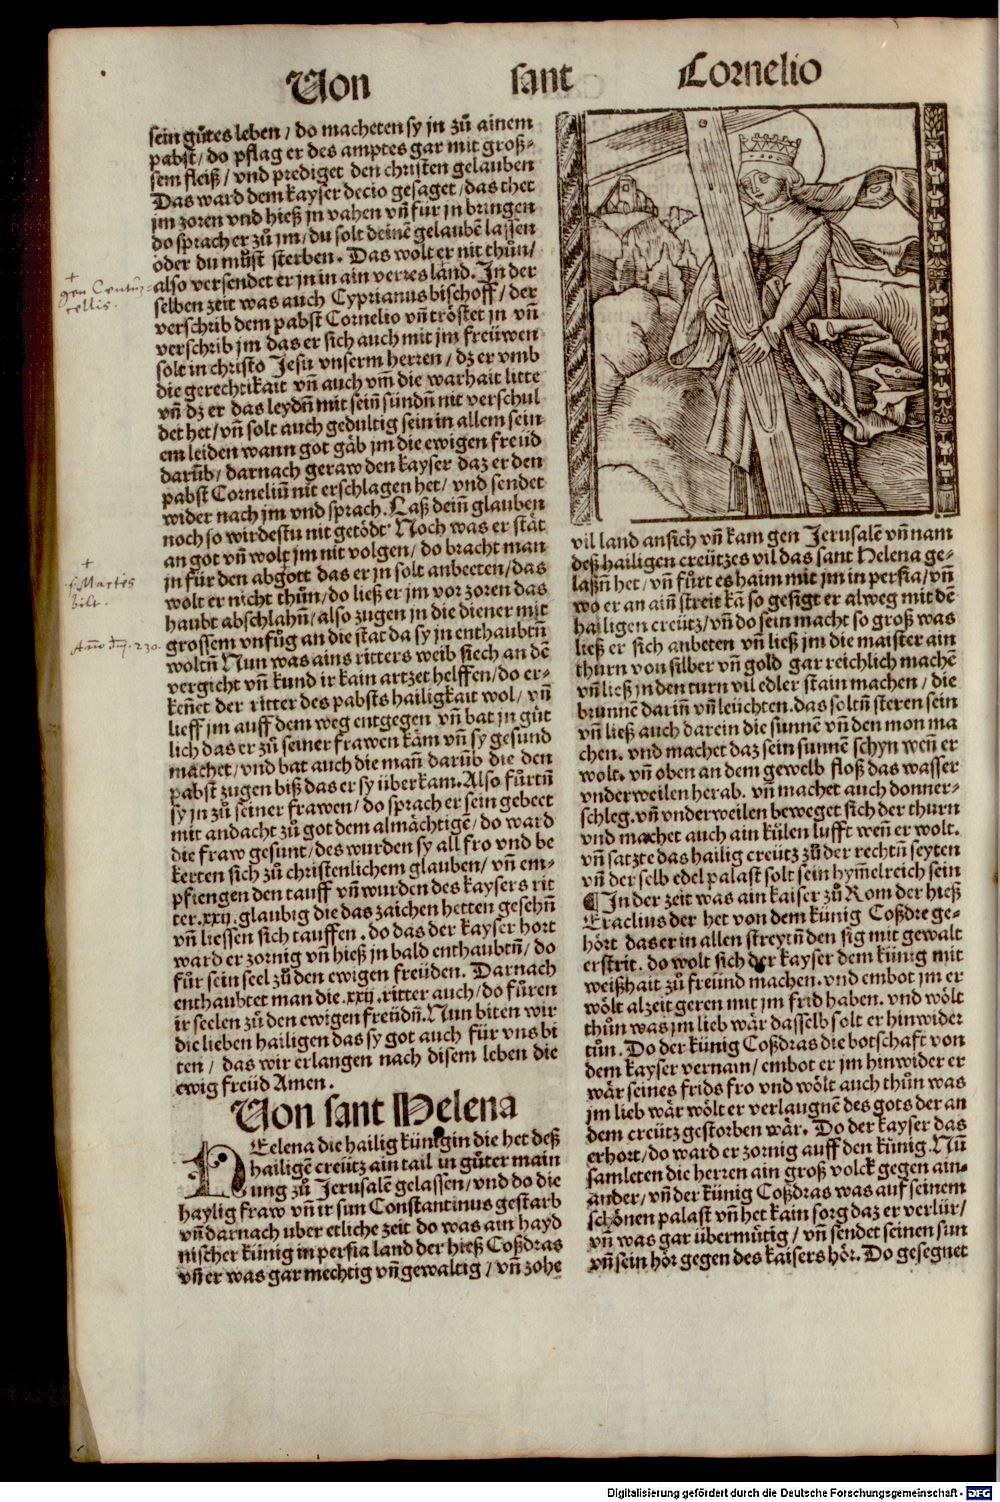 Von sant Cornelio
sein gůtes leben / do macheten sy jn zů ainem
pabst / do pflag er des amptes gar mit groß-
sem fleiß / vnd prediget den christen gelauben
Das ward dem kayser decio gesaget / das thet
jm zoren vnd hieß jn vahen vn̄ für jn bringen
do sprach er zů jm / du solt deinē gelaubē lassen
oder du můst sterben. Das wolt er nit thůn /
also versendet er jn in ain verres land. In der
selben zeit was auch Cyprianus bischoff / der
verschrib dem pabst Cornelio vn̄ tröstet jn vn̄
verschrib jm das er sich auch mit jm freüwen
solt in christo Jesu vnserm herren / dz er vmb
die gerechtikait vn̄ auch vm̄ die warhait litte
vn̄ dz er das leydn̄ mit sein̄ sündn̄ nit verschul
det het / vn̄ solt auch gedultig sein in allem sein
em leiden wann got gäb jm die ewigen freüd
darūb / darnach geraw den kayser daz er den
pabst Corneliū nit erschlagen het / vnd sendet
wider nach jm vnd sprach. Laß dein̄ glauben
noch so wirdestu nit getödt. Noch was er stät
an got vn̄ wolt jm nit volgen / do bracht man
jn für den abgott das er jn solt anbeeten / das
wolt er nicht thůn / do ließ er jm vor zoren das
haubt abschlahn̄ / also zugen jn die diener mit
grossem vnfůg an die stat da sy jn enthaubtn̄
woltn̄ Nun was ains ritters weib siech an dē
vergicht vn̄ kund ir kain artzet helffen / do er-
ken̄et der ritter des pabsts hailigkait wol / vn̄
lieff jm auff dem weg entgegen vn̄ bat jn güt
lich das er zů seiner frawen käm vn̄ sy gesund
machet / vnd bat auch die man̄ darūb die den
pabst zugen biß das er sy überkam. Also fůrtn̄
sy jn zů seiner frawen / do sprach er sein gebeet
mit andacht zů got dem almächtigē / do ward
die fraw gesunt / des wurden sy all fro vnd be
kerten sich zů christenlichem glauben / vn̄ em-
pfiengen den tauff vn̄ wurden des kaysers rit
ter .xxij. glaubig die das zaichen hetten gesehn̄
vn̄ liessen sich tauffen. do das der kayser hort
ward er zornig vn̄ hieß jn bald enthaubtn̄ / do
fůr sein seel zů den ewigen freüden. Darnach
enthaubtet man die .xxij. ritter auch / do fůren
ir seelen zů den ewigen freüdn̄. Nun biten wir
die lieben hailigen das sy got auch für vns bi
ten / das wir erlangen nach disem leben die
ewig freüd Amen.
Von sant Helena
HEelena die hailig künigin die het deß
hailigē creütz ain tail in gůter main
ung zů Jerusalē gelassen / vnd do die
haylig fraw vn̄ ir sun Constantinus gestarb
vn̄ darnach uber etliche zeit do was ain hayd
nischer künig in persia land der hieß Coßdras
vn̄ er was gar mechtig vn̄ gewaltig / vn̄ zohe
vil land an sich vn̄ kam gen Jerusalē vn̄ nam
deß hailigen creützes vil das sant Helena ge-
laßn̄ het / vn̄ fůrt es haim mit jm in persia / vn̄
wo er an ain̄ streit kā so gesigt er alweg mit dē
hailigen creütz / vn̄ do sein macht so groß was
ließ er sich anbeten vn̄ ließ jm die maister ain
thurn von silber vn̄ gold gar reichlich machē
vn̄ ließ jn den turn vil edler stain machen / die
brunnē darin̄ vn̄ leüchten. das soltn̄ steren sein
vn̄ ließ auch darein die sunnē vn̄ den mon ma
chen. vnd machet daz sein sunnē schyn wen̄ er
wolt. vn̄ oben an dem gewelb floß das wasser
vnderweilen herab. vn̄ machet auch donner-
schleg. vn̄ vnderweilen beweget sich der thurn
vnd machet auch ain külen lufft wen̄ er wolt.
vn̄ satzte das hailig creütz zů der rechtn̄ seyten
vn̄ der selb edel palast solt sein hym̄elreich sein
¶ In der zeit was ain kaiser zů Rom der hieß
Eraclius der het von dem künig Coßdre ge-
hört das er in allen streytn̄ den sig mit gewalt
erstrit. do wolt sich der kayser dem künig mit
weißhait zů freünd machen. vnd embot jm er
wölt alzeit geren mit jm frid haben. vnd wölt
thůn was jm lieb wär dasselb solt er hinwider
tůn. Do der künig Coßdras die botschaft von
dem kayser vernam / embot er jm hinwider er
wär seines frids fro vnd wölt auch thůn was
jm lieb wär wölt er verlaugnē des gots der an
dem creütz gestorben wär. Do der kayser das
erhort / do ward er zornig auff den künig. Nū
samleten die herren ain groß volck gegen ain-
ander / vn̄ der künig Coßdras was auf seinem
schönen palast vn̄ het kain sorg daz er verlür /
vn̄ was gar übermütig / vn̄ sendet seinen sun
vn̄ sein hör gegen des kaisers hör. Do gesegnet
gen Centum-
cellis.
Martis
bilt.
Digitalisierung gefördert durch die Deutsche Forschungsgemeinschaft - DFG